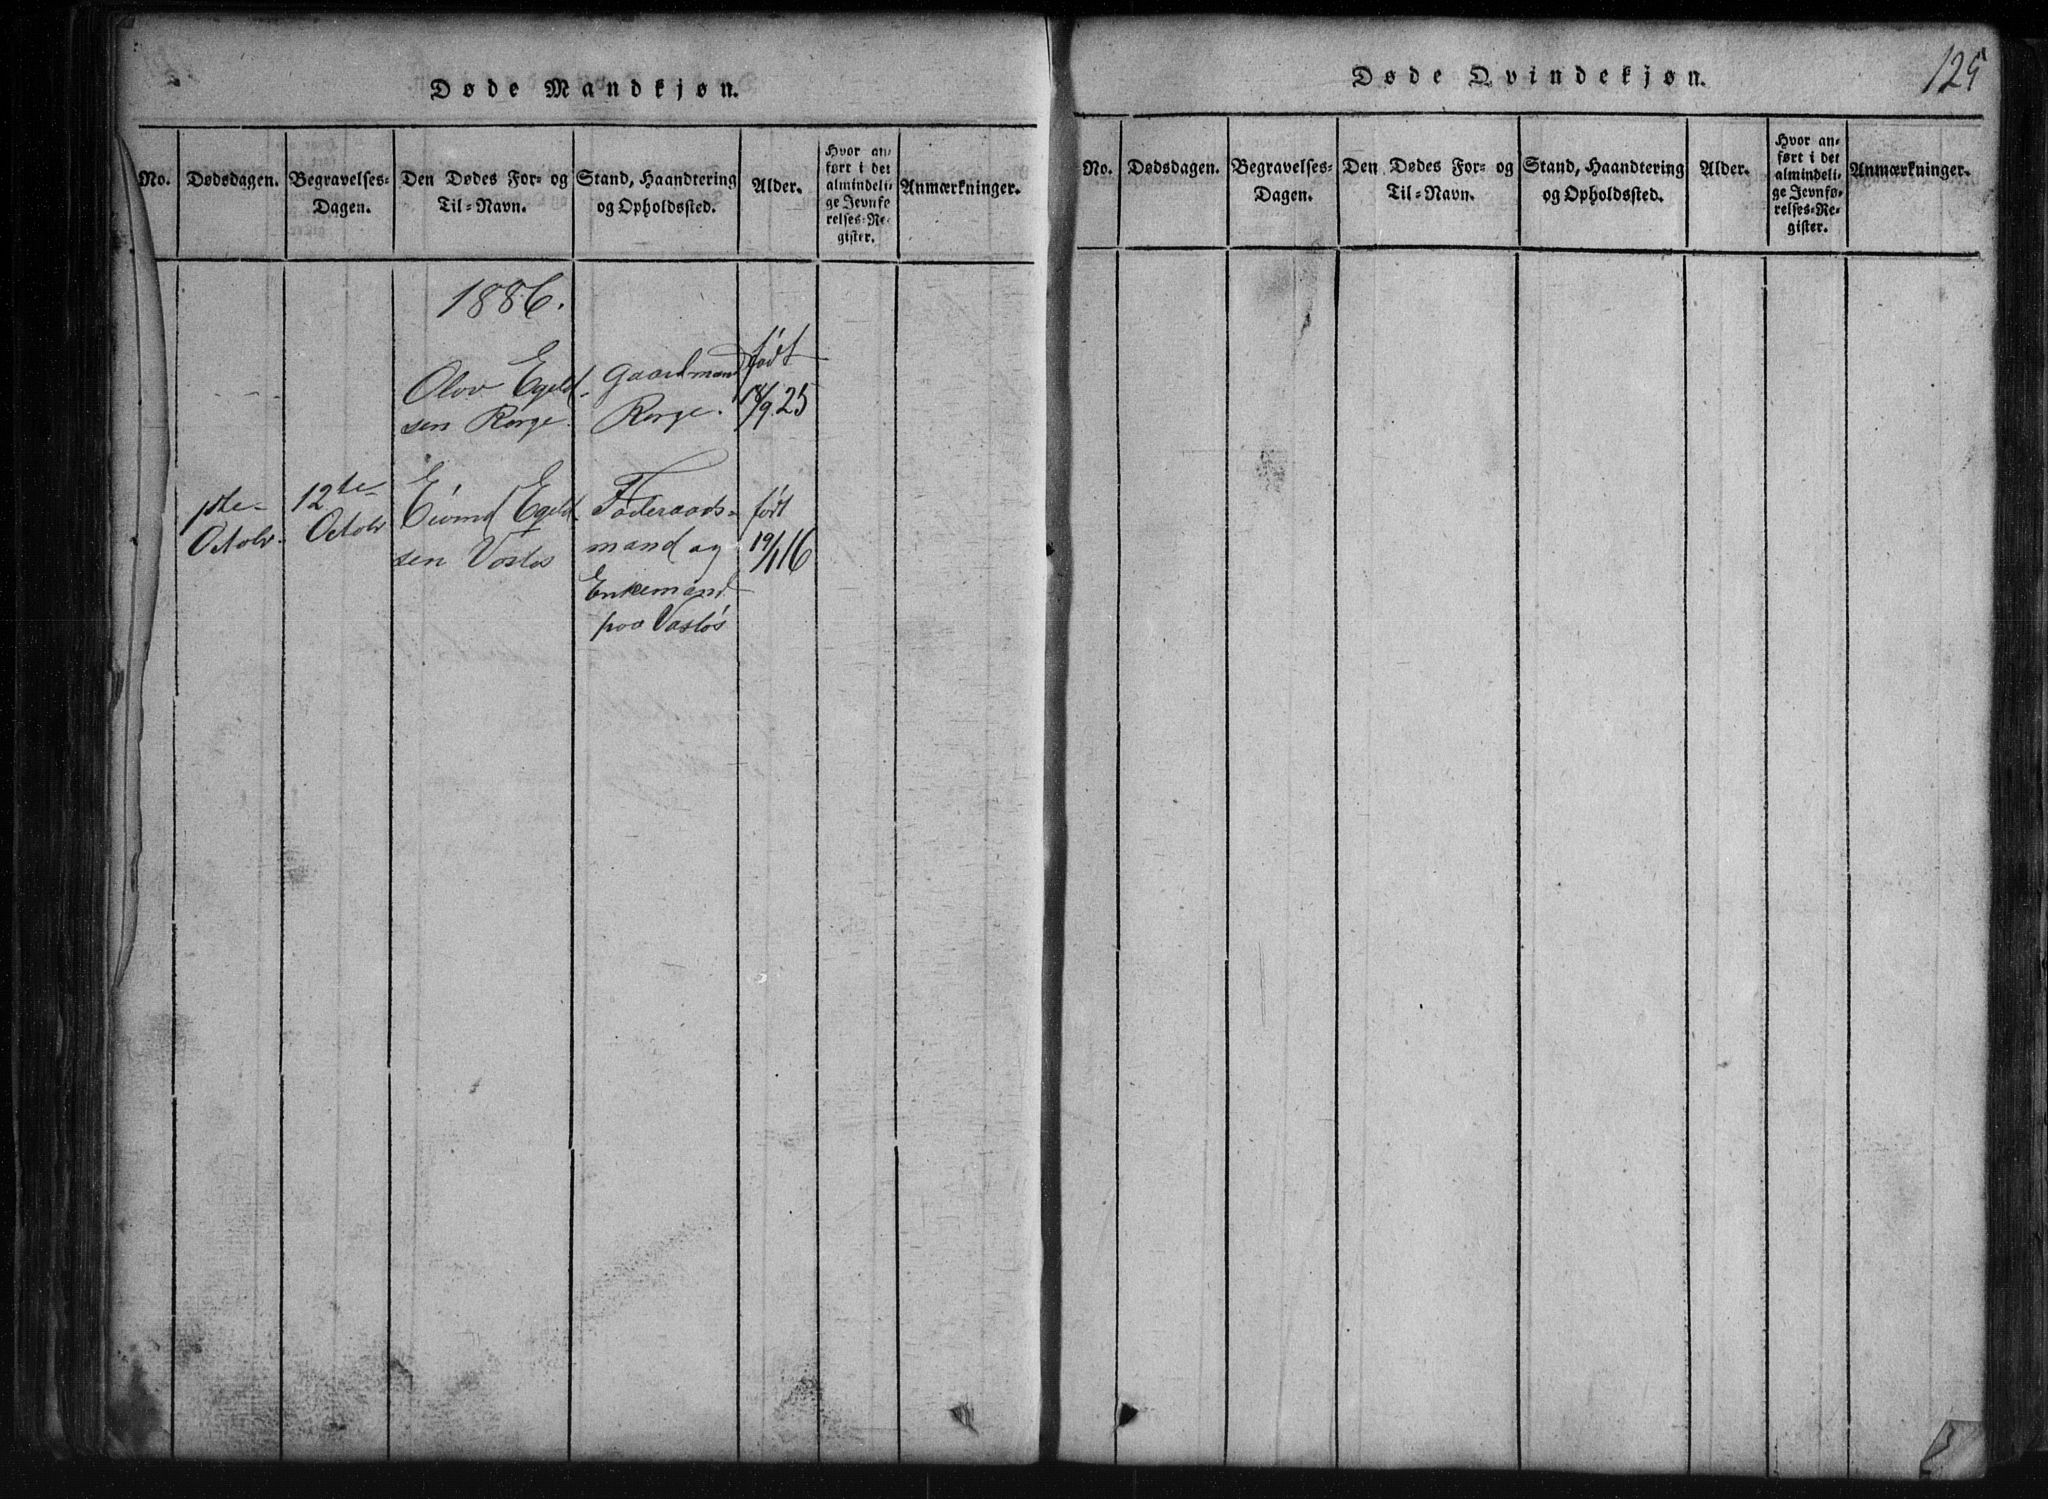 Døde Mandkjøn.
No. Dødsdagen. Begravelses-Dagen. Den Dødes For- og Til-Navn. Stand, Haandtering og Opholdssted. Alder. Hvor anført i det almindelige Jevnførelses-Register. Anmærkninger.
1886.
Olov Egeld- Gaardmand født
sen Rorge. Rorge. 18/9.25
1ste 12te Eivind Egeld- Føderaads- født
Octobr. Octobr sen Vasløs mand og 19/1 16
Enkemand
paa Vasløs
Døde Qvindekjøn.
125
No. Dødsdagen. Begravelses-Dagen. Den Dødes For- og Til-Navn. Stand, Haandtering og Opholdssted. Alder. Hvor anført i det almindelige Jevnførelses-Register. Anmærkninger.